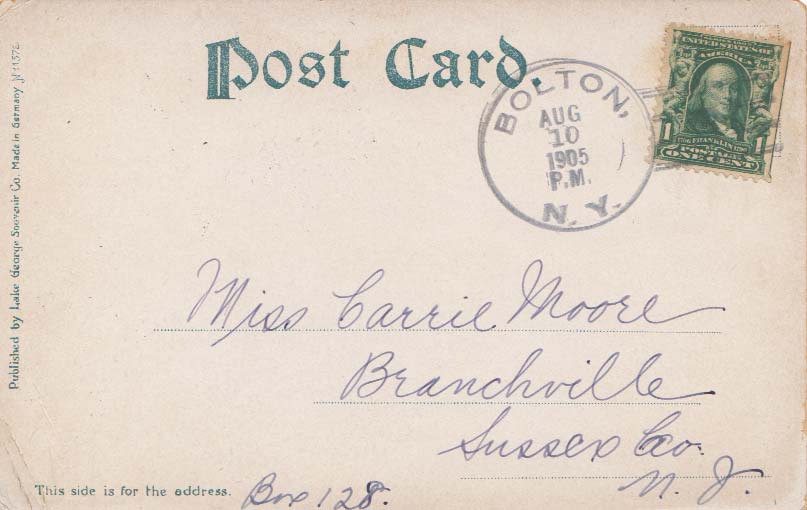 Post Card.
BOLTON,
AUG
10
1905
P.M.
N. Y.
UNITED STATES OF
AMERICA
1706 FRANKLIN 1790
1 POSTAGE 1
ONE CENT
Miss Carrie Moore
Branchville
Sussex Co.
N. J.
Box 128.
This side is for the address.
Published by Lake George Souvenir Co. Made in Germany